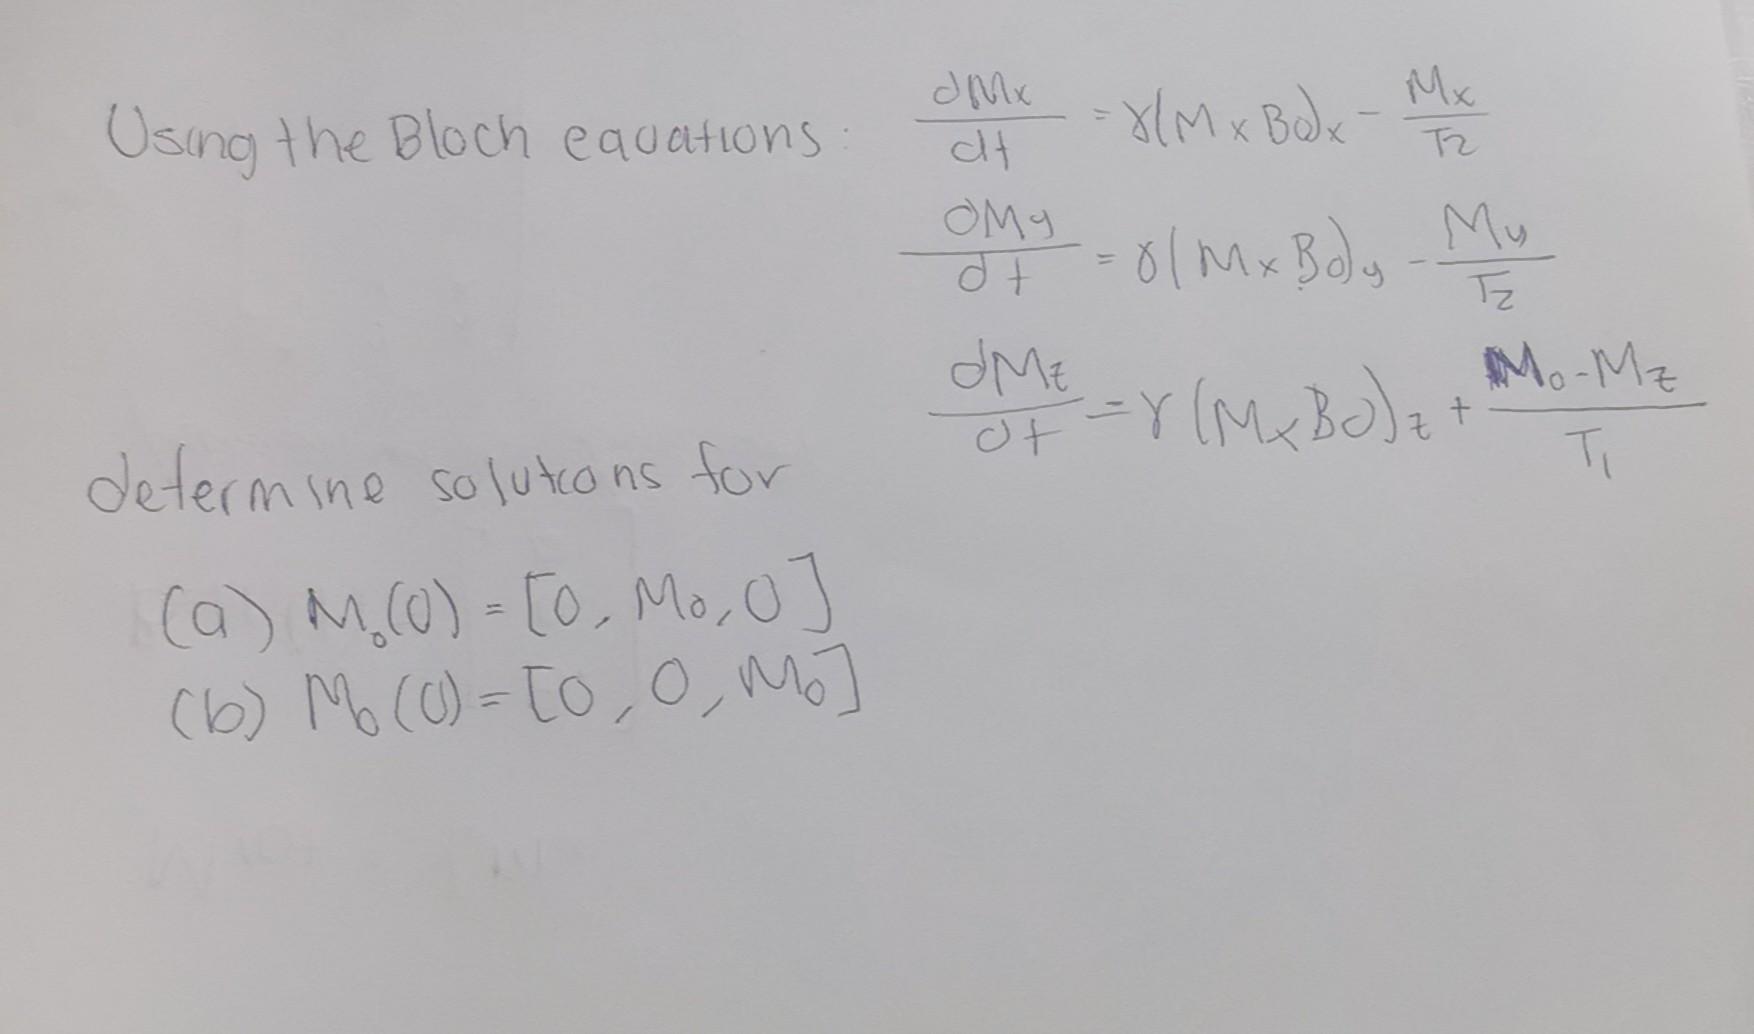 Using the Bloch equations:
dMx/dt = γ(M x B0)x - Mx/T2
dMy/dt = γ(M x B0)y - My/T2
dMz/dt = γ(M x B0)z + M0-Mz/T1
determine solutions for
(a) M0(0) = [0, M0, 0]
(b) M0(0) = [0, 0, M0]